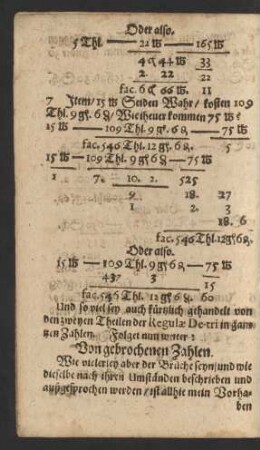 Oder also.
5 Thl. — 22 ℔ — 165 ℔
4 C 44 ℔ 33
2. 22 22
fac. 6 C 66 ℔. 11
7 Item/ 15 ℔ Seiden Wahr/ kosten 109
Thl. 9 gl. 6 ₰/ Wie theuer kommen 75 ℔?
15 ℔ — 109 Thl. 9 gl. 6 ₰ — 75 ℔
fac. 546 Thl. 12 gl. 6 ₰. 5
15 ℔ — 109 Thl. 9 gl. 6 ₰. — 75 ℔
1 7. 10. 2. 525
9 18. 27
1 2. 3
18. 6
fac. 546 Thl. 12 gl. 6 ₰.
Oder also.
15 ℔ — 109 Thl. 9 gl. 6 ₰ — 75 ℔
437 3 15
fac. 546 Thl. 12 gl. 6 ₰. 60
Und so viel sey auch kürtzlich gehandelt von
den zweyen Theilen der Regulæ De-tri in gan-
tzen Zahlen. Folget nun weiter:
Von gebrochenen Zahlen.
Wie vielerley aber der Brüche seyn/ und wie
dieselbe nach ihren Umständen beschrieben und
außgesprochen werden/ ist allhie mein Vorha-
ben